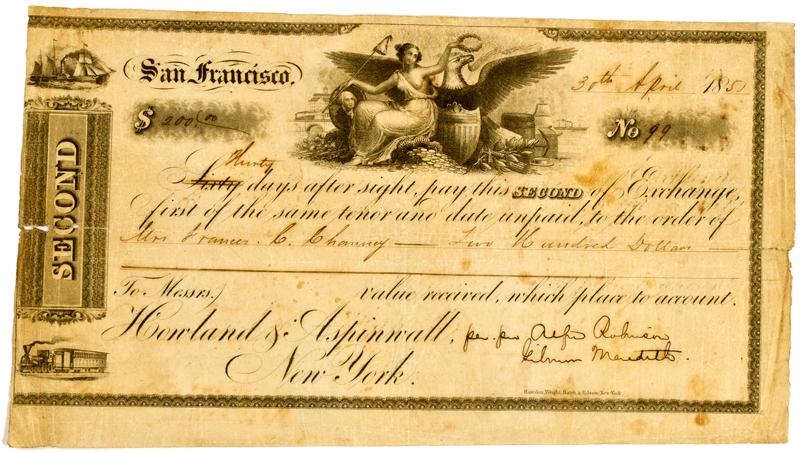 San Francisco. 30th April 1851
$ 200.00 No 99
Thirty
Sixty days after sight, pay this SECOND of Exchange,
first of the same tenor and date unpaid, to the order of
Mrs Frances. C. Channey — Two Hundred Dollars —
To Messes.) value received, which place to account.
Howland & Aspinwall, per pro Alfd Robinson
New York.
SECOND
Rawdon, Wright, Hatch & Edson, New-York